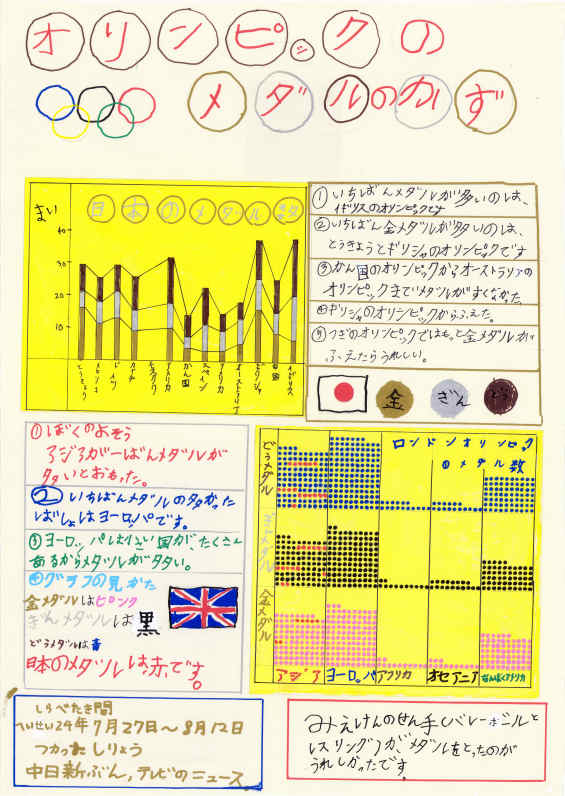 オリンピックの
メダルのかず
まい
日本のメダル数
40
30
20
10
とうきょう
メキシコ
ドイツ
カナダ
モスクワ
アメリカ
かん国
スペイン
アメリカ
オーストラリア
ギリシャ
中国
イギリス
①いちばんメダルが多いのは、
イギリスのオリンピックです
②いちばん金メダルが多いのは、
とうきょうとギリシャのオリンピックです
③かん国のオリンピックからオーストラリアの
オリンピックまでメダルがすくなかった。
④ギリシャのオリンピックからふえた。
⑤つぎのオリンピックではもっと金メダルが
ふえたらうれしい。
金 ぎん どう
①ぼくのよそう
アジアが一ばんメダルが
多いとおもった。
②いちばんメダルの多かった
ばしょはヨーロッパです。
③ヨーロッパは小さい国が、たくさん
あるからメダルがタタい。
④グラフの見かた
金メダルはピンク
ぎんメダルは黒
どうメダルは青
日本のメダルは赤です。
ロンドンオリンピック
のメダル数
どうメダル
ぎんメダル
金メダル
アジア ヨーロッパ アフリカ オセアニア なんぼくアメリカ
しらべたき間
へいせい24年7月27日〜8月12日
つかったしりょう
中日新ぶん,テレビのニュース
みえけんのせん手(バレーボールと
レスリング)が、メダルをとったのが
うれしかったです。